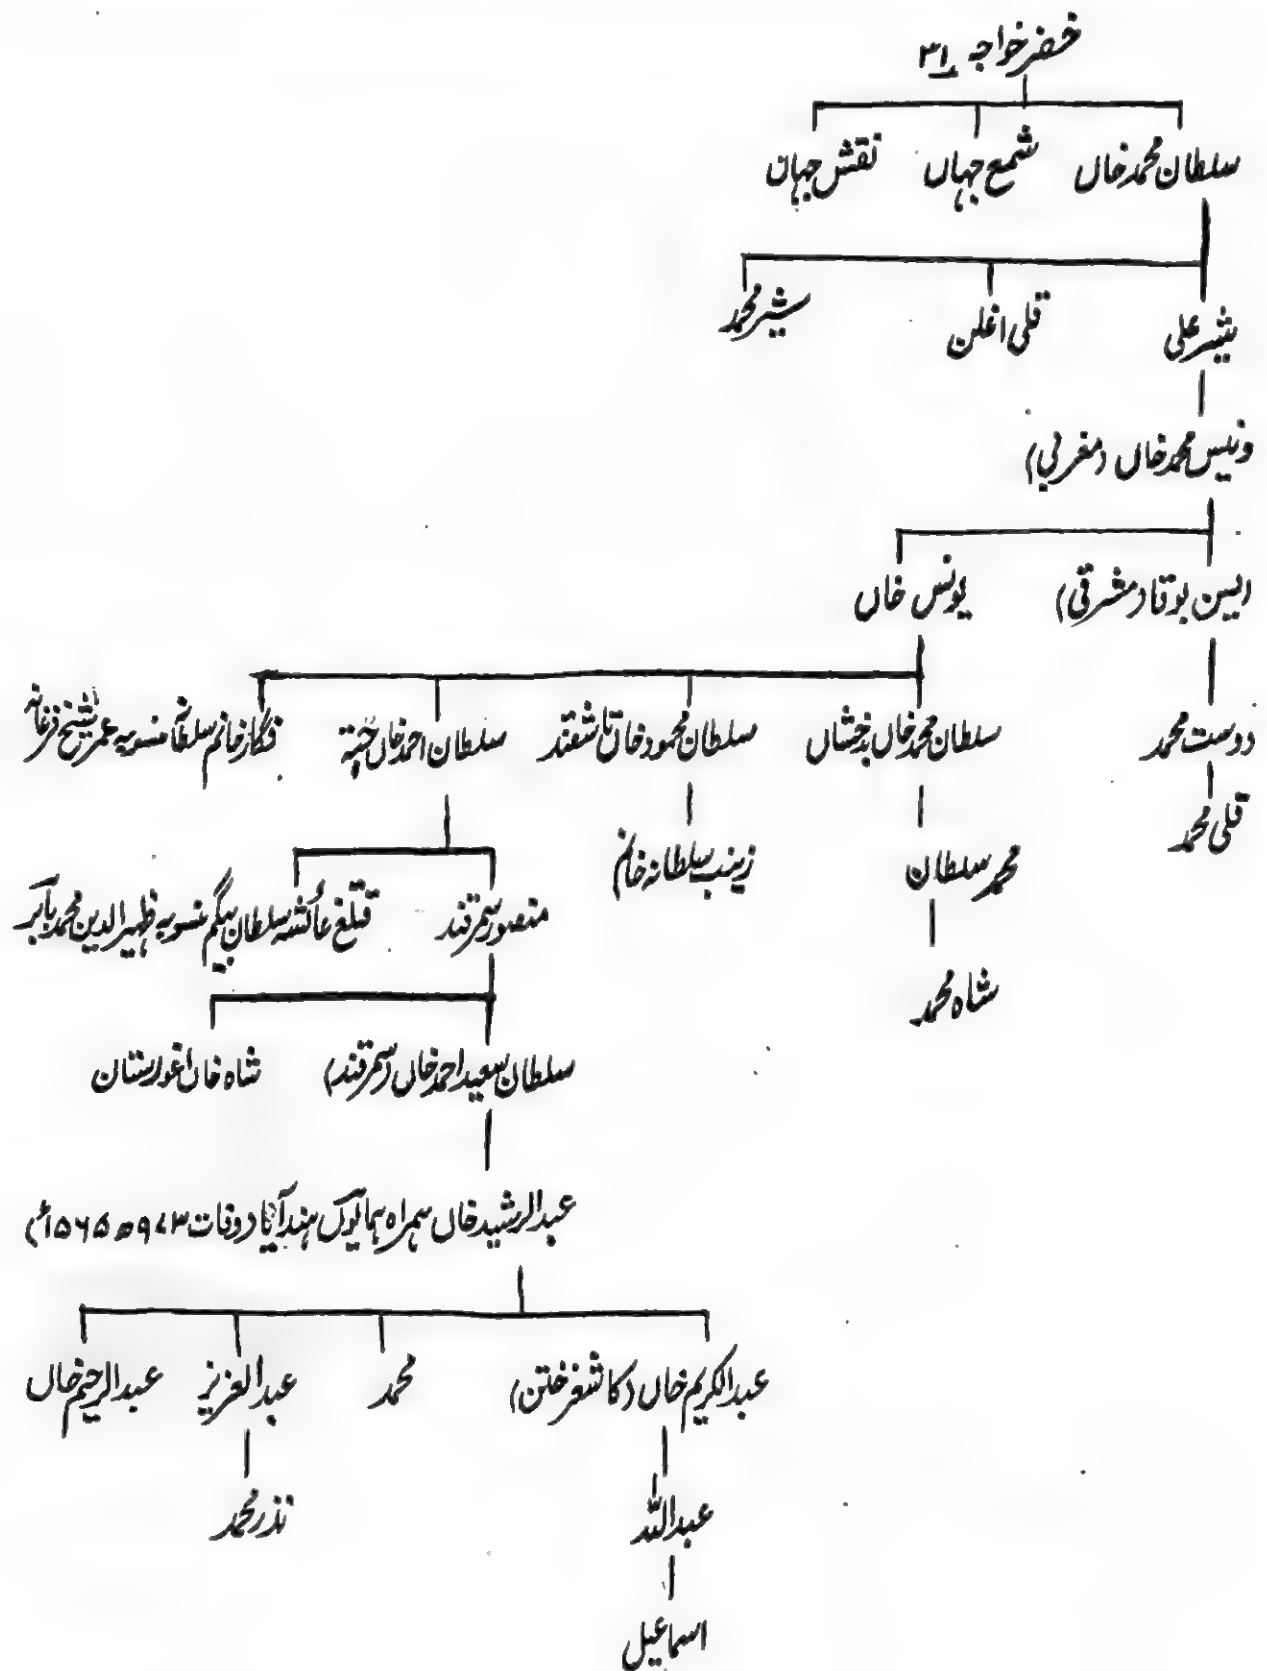 خضر خواجہ ۳۱
سلطان محمد خاں شمع جہاں نقش جہاں
شیر علی قلی اغلن شیر محمد
ونیس محمد خاں (مغربی)
ایسن بوقا (مشرقی) یونس خاں
دوست محمد سلطان محمد خاں بدخشاں سلطان محمود خاں تاشقند سلطان احمد خاں خانم سلطانہ منسوبہ عمر شیخ فرغانہ
قلی محمد محمد سلطان زینب سلطانہ خانم
منصور سمرقند قتلغ عائشہ سلطان بیگم منسوبہ ظہیر الدین محمد بابر
شاہ محمد
سلطان سعید احمد خاں (سمرقند) شاہ خاں اغورستان
عبد الرشید خاں ہمراہ ہمایوں ہند آیا (وفات ۹۷۳ھ ۱۵۶۵ء)
عبد الکریم خاں (کاشغر ختن) محمد عبد العزیز عبد الرحیم خاں
عبد اللہ نذر محمد
اسماعیل